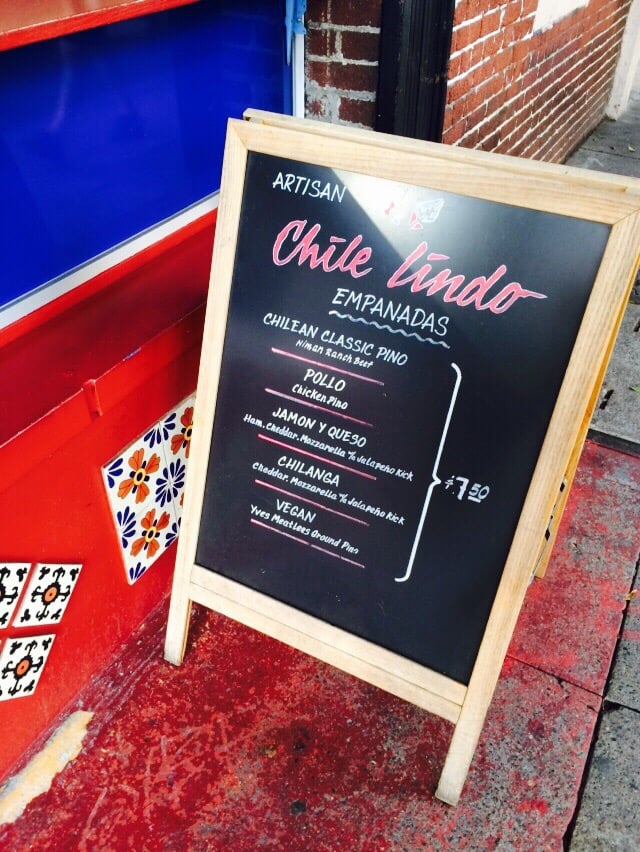 ARTISAN
Chile lindo
EMPANADAS
CHILEAN CLASSIC PINO
Niman Ranch Beef
POLLO
Chicken Pino
JAMON Y QUESO
Ham, Cheddar, Mozzarella w/a Jalapeño Kick
CHILANGA
Cheddar, Mozzarella w/a Jalapeño Kick
VEGAN
Yves Meatless Ground Pino
$7.50